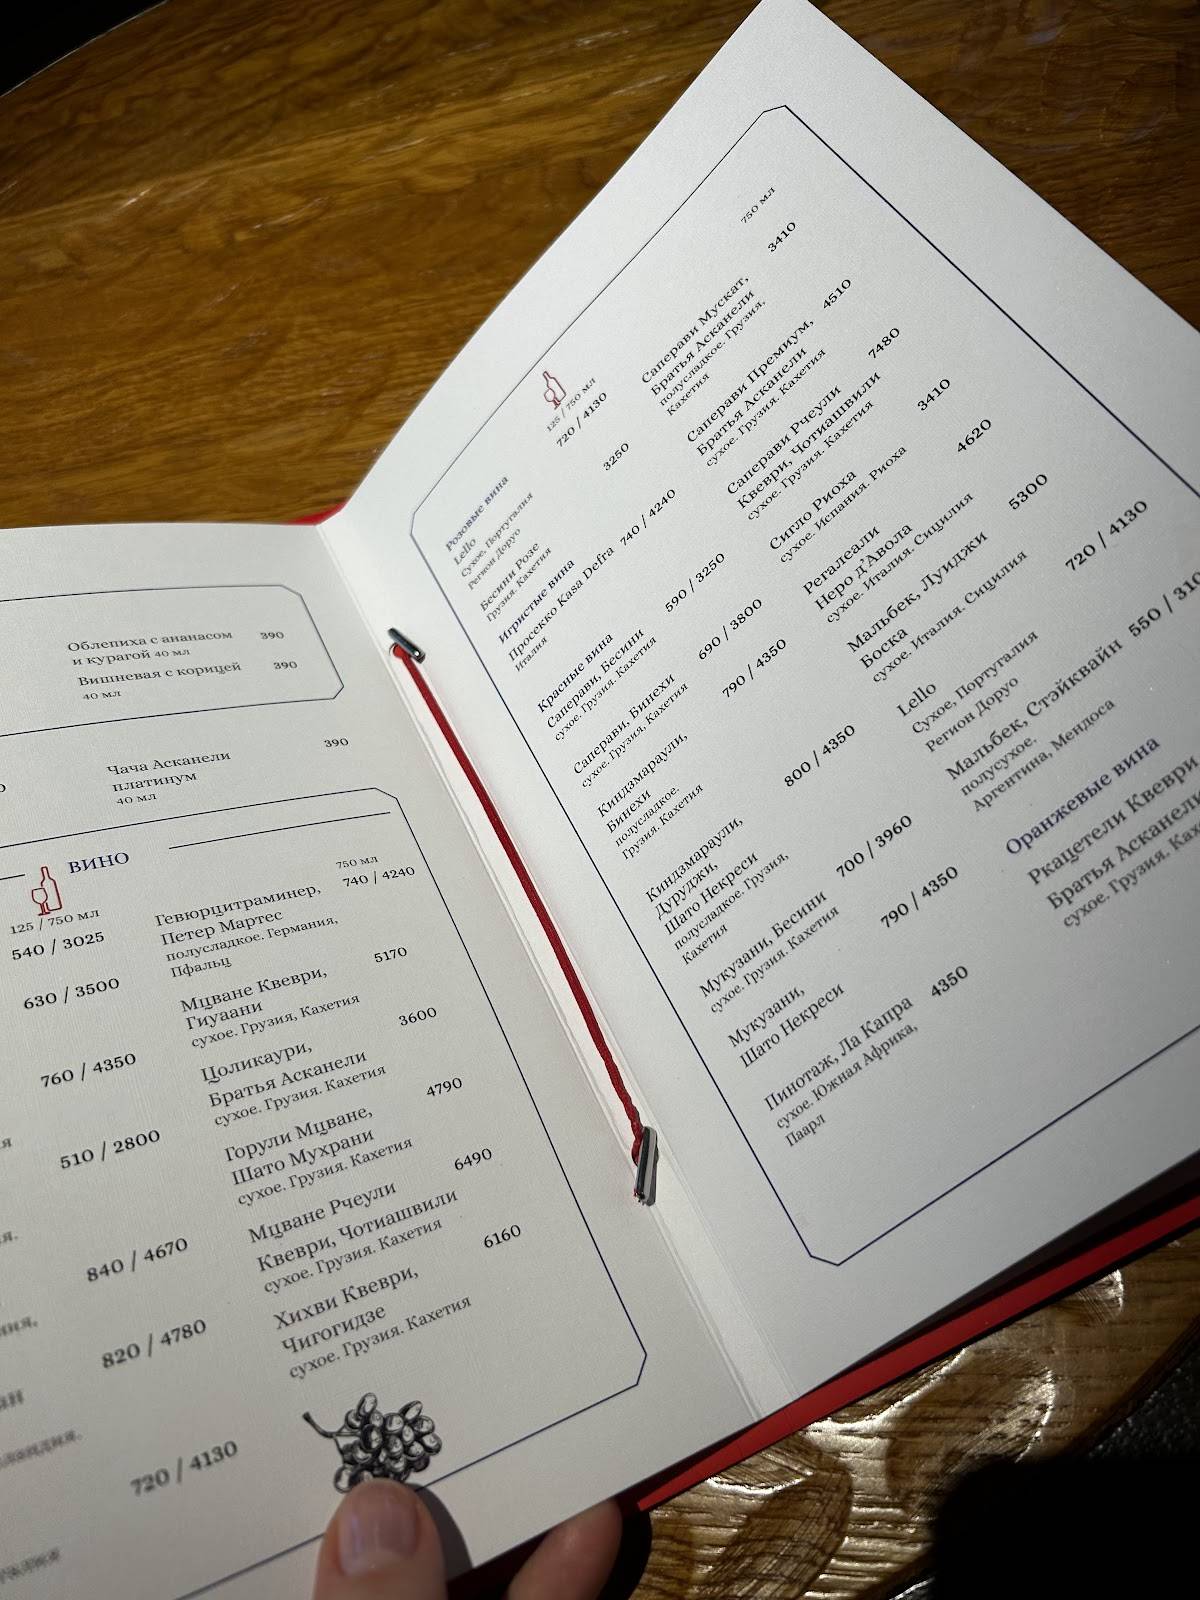 Облепиха с ананасом 390
и курагой 40 мл
Вишневая с корицей 390
40 мл
Чача Асканели 390
платинум
40 мл
ВИНО
125 / 750 мл
540 / 3025
630 / 3500
760 / 4350
510 / 2800
840 / 4670
820 / 4780
720 / 4130
750 мл
Гевюрцитраминер, 740 / 4240
Петер Мартес
полусладкое. Германия,
Пфальц
Мцване Квеври, 5170
Гиуаани
сухое. Грузия, Кахетия
Цоликаури, 3600
Братья Асканели
сухое. Грузия. Кахетия
Горули Мцване, 4790
Шато Мухрани
сухое. Грузия. Кахетия
Мцване Рчеули 6490
Квеври, Чотиашвили
сухое. Грузия. Кахетия
Хихви Квеври, 6160
Чигогидзе
сухое. Грузия. Кахетия
125 / 750 мл
Розовые вина
Lello 720 / 4130
сухое, Португалия
Регион Доруо
Бесини Розе 3250
Грузия. Кахетия
Игристые вина
Просекко Kasa Defra 740 / 4240
Италия
Красные вина
Саперави, Бесини 590 / 3250
сухое. Грузия. Кахетия
Саперави, Бинехи 690 / 3800
сухое. Грузия, Кахетия
Киндзмараули, 790 / 4350
Бинехи
полусладкое.
Грузия. Кахетия
Киндзмараули, 800 / 4350
Дуруджи,
Шато Некреси
полусладкое. Грузия,
Кахетия
Мукузани, Бесини 700 / 3960
сухое. Грузия. Кахетия
Мукузани, 790 / 4350
Шато Некреси
Пинотаж, Ла Капра 4350
сухое. Южная Африка,
Паарл
750 мл
Саперави Мускат, 3410
Братья Асканели
полусладкое. Грузия,
Кахетия
Саперави Премиум, 4510
Братья Асканели
сухое. Грузия. Кахетия
Саперави Рчеули 7480
Квеври, Чотиашвили
сухое. Грузия. Кахетия
Сигло Риоха 3410
сухое. Испания. Риоха
Регалеали 4620
Неро д’Авола
сухое. Италия. Сицилия
Мальбек, Луиджи 5300
Боска
сухое. Италия. Сицилия
Lello 720 / 4130
Сухое, Португалия
Регион Доруо
Мальбек, Стэйквайн 550 / 310
полусухое.
Аргентина, Мендоса
Оранжевые вина
Ркацетели Квеври
Братья Асканели
сухое. Грузия.